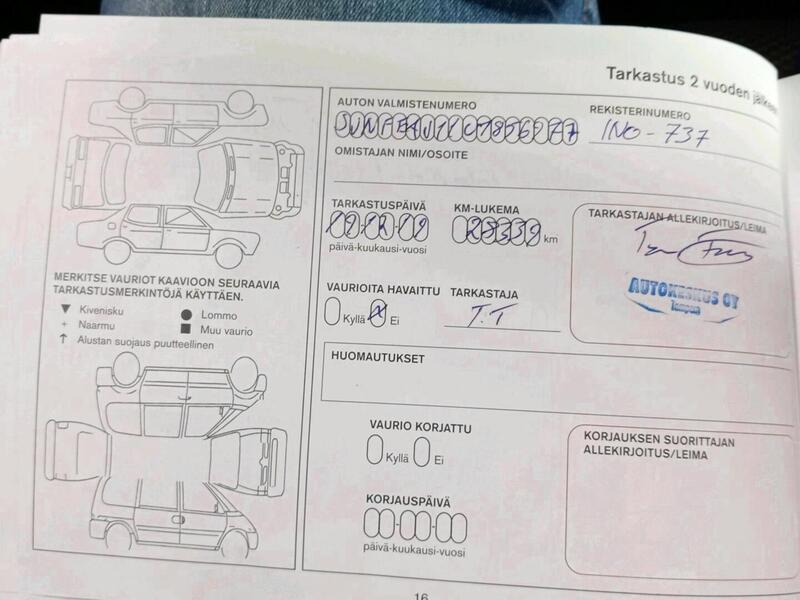 Tarkastus 2 vuoden
AUTON VALMISTENUMERO
REKISTERINUMERO
INO-737
OMISTAJAN NIMI/OSOITE
TARKASTUSPÄIVÄ
KM-LUKEMA
TARKASTAJAN ALLEKIRJOITUS/LEIMA
km
päivä-kuukausi-vuosi
AUTOKESKUS OY
VAURIOITA HAVAITTU
TARKASTAJA
Kyllä
x
Ei
T.T
MERKITSE VAURIOT KAAVIOON SEURAAVIA
TARKASTUSMERKINTÖJÄ KÄYTTÄEN.
Kivenisku
Lommo
+ Naarmu
Muu vaurio
↑ Alustan suojaus puutteellinen
HUOMAUTUKSET
VAURIO KORJATTU
Kyllä
Ei
KORJAUKSEN SUORITTAJAN
ALLEKIRJOITUS/LEIMA
KORJAUSPÄIVÄ
päivä-kuukausi-vuosi
16